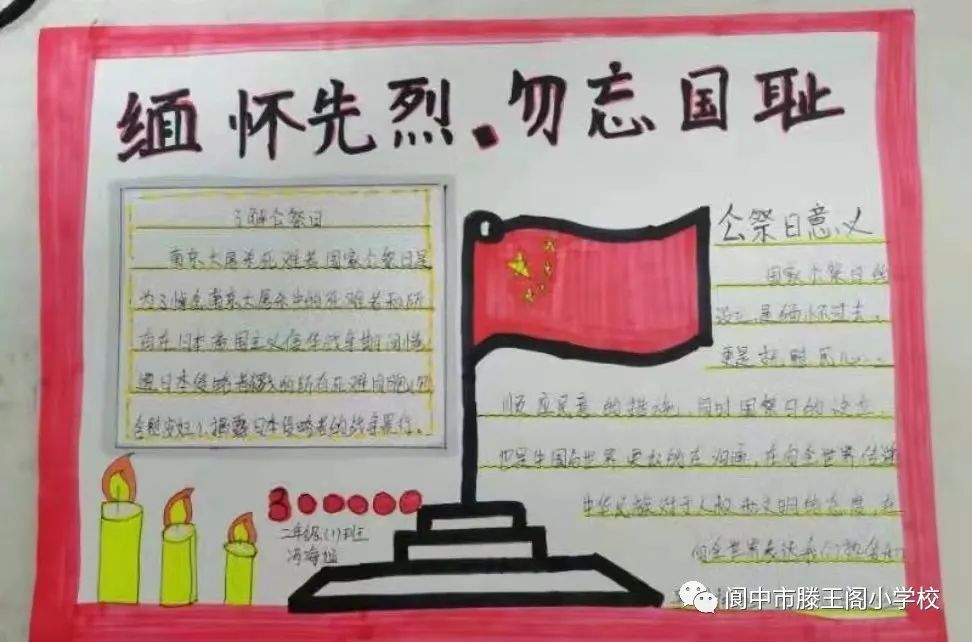 缅怀先烈·勿忘国耻
了解公祭日
南京大屠杀死难者国家公祭日是
为了悼念南京大屠杀中的死难者和所
有在日本帝国主义侵华战争期间惨
遭日本侵略者戮的所有死难同胞
揭露日本侵略者的战争罪行。
二年级(1)班
公祭日意义
国家公祭日的
设立是缅怀过去,
更是
顺应民意的措施,同时国祭日的设立
也是中国与世界 在向全世界传递
中华民族对于人权和文明的态度,在
向全世界表达我们热爱
阆中市滕王阁小学校